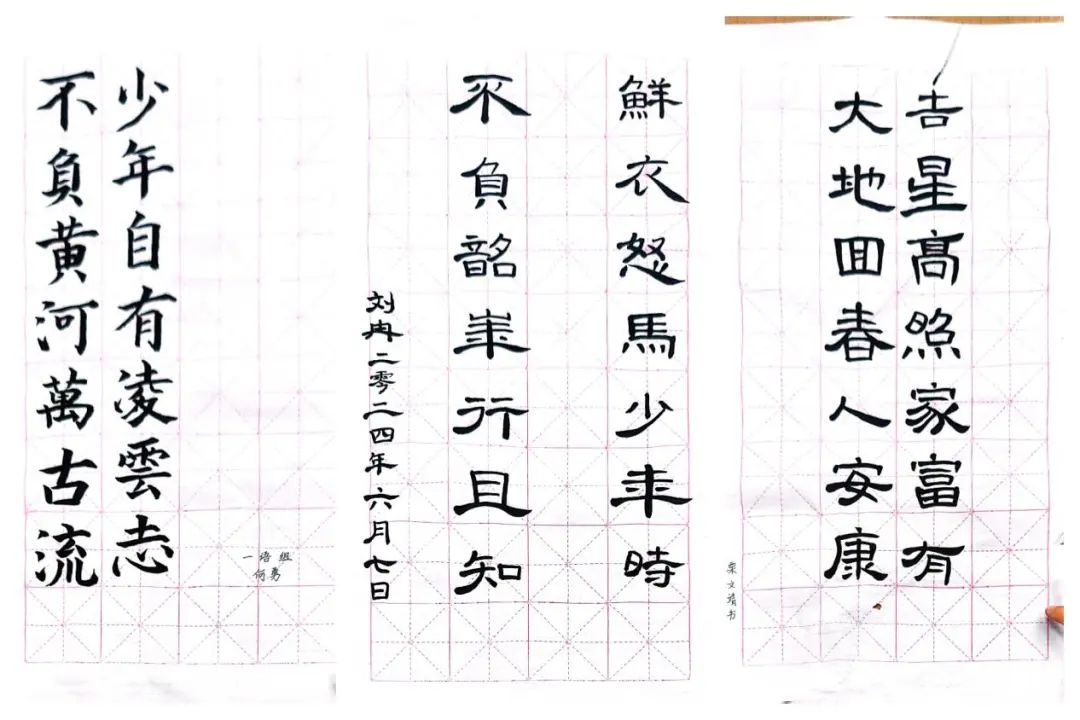 少年自有凌雲志
不負黄河萬古流
一培组
何勇
鮮衣怒馬少年時
不負韶華行且知
刘冉二零二四年六月七日
吉星髙照家富有
大地回春人安康